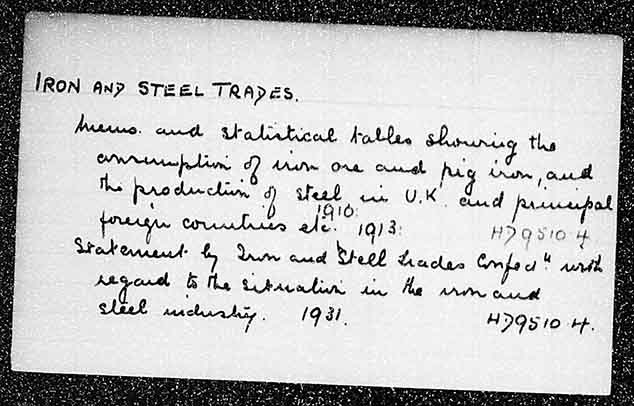 IRON AND STEEL TRADES.
Memo. and statistical tables showing the
consumption of iron ore and pig iron, and
the production of steel in U.K. and principal
1910.
foreign countries etc. 1913. HD9510.4
Statement by Iron and Steel Trades Confedn. with
regard to the situation in the iron and
steel industry. 1931. HD9510.4.